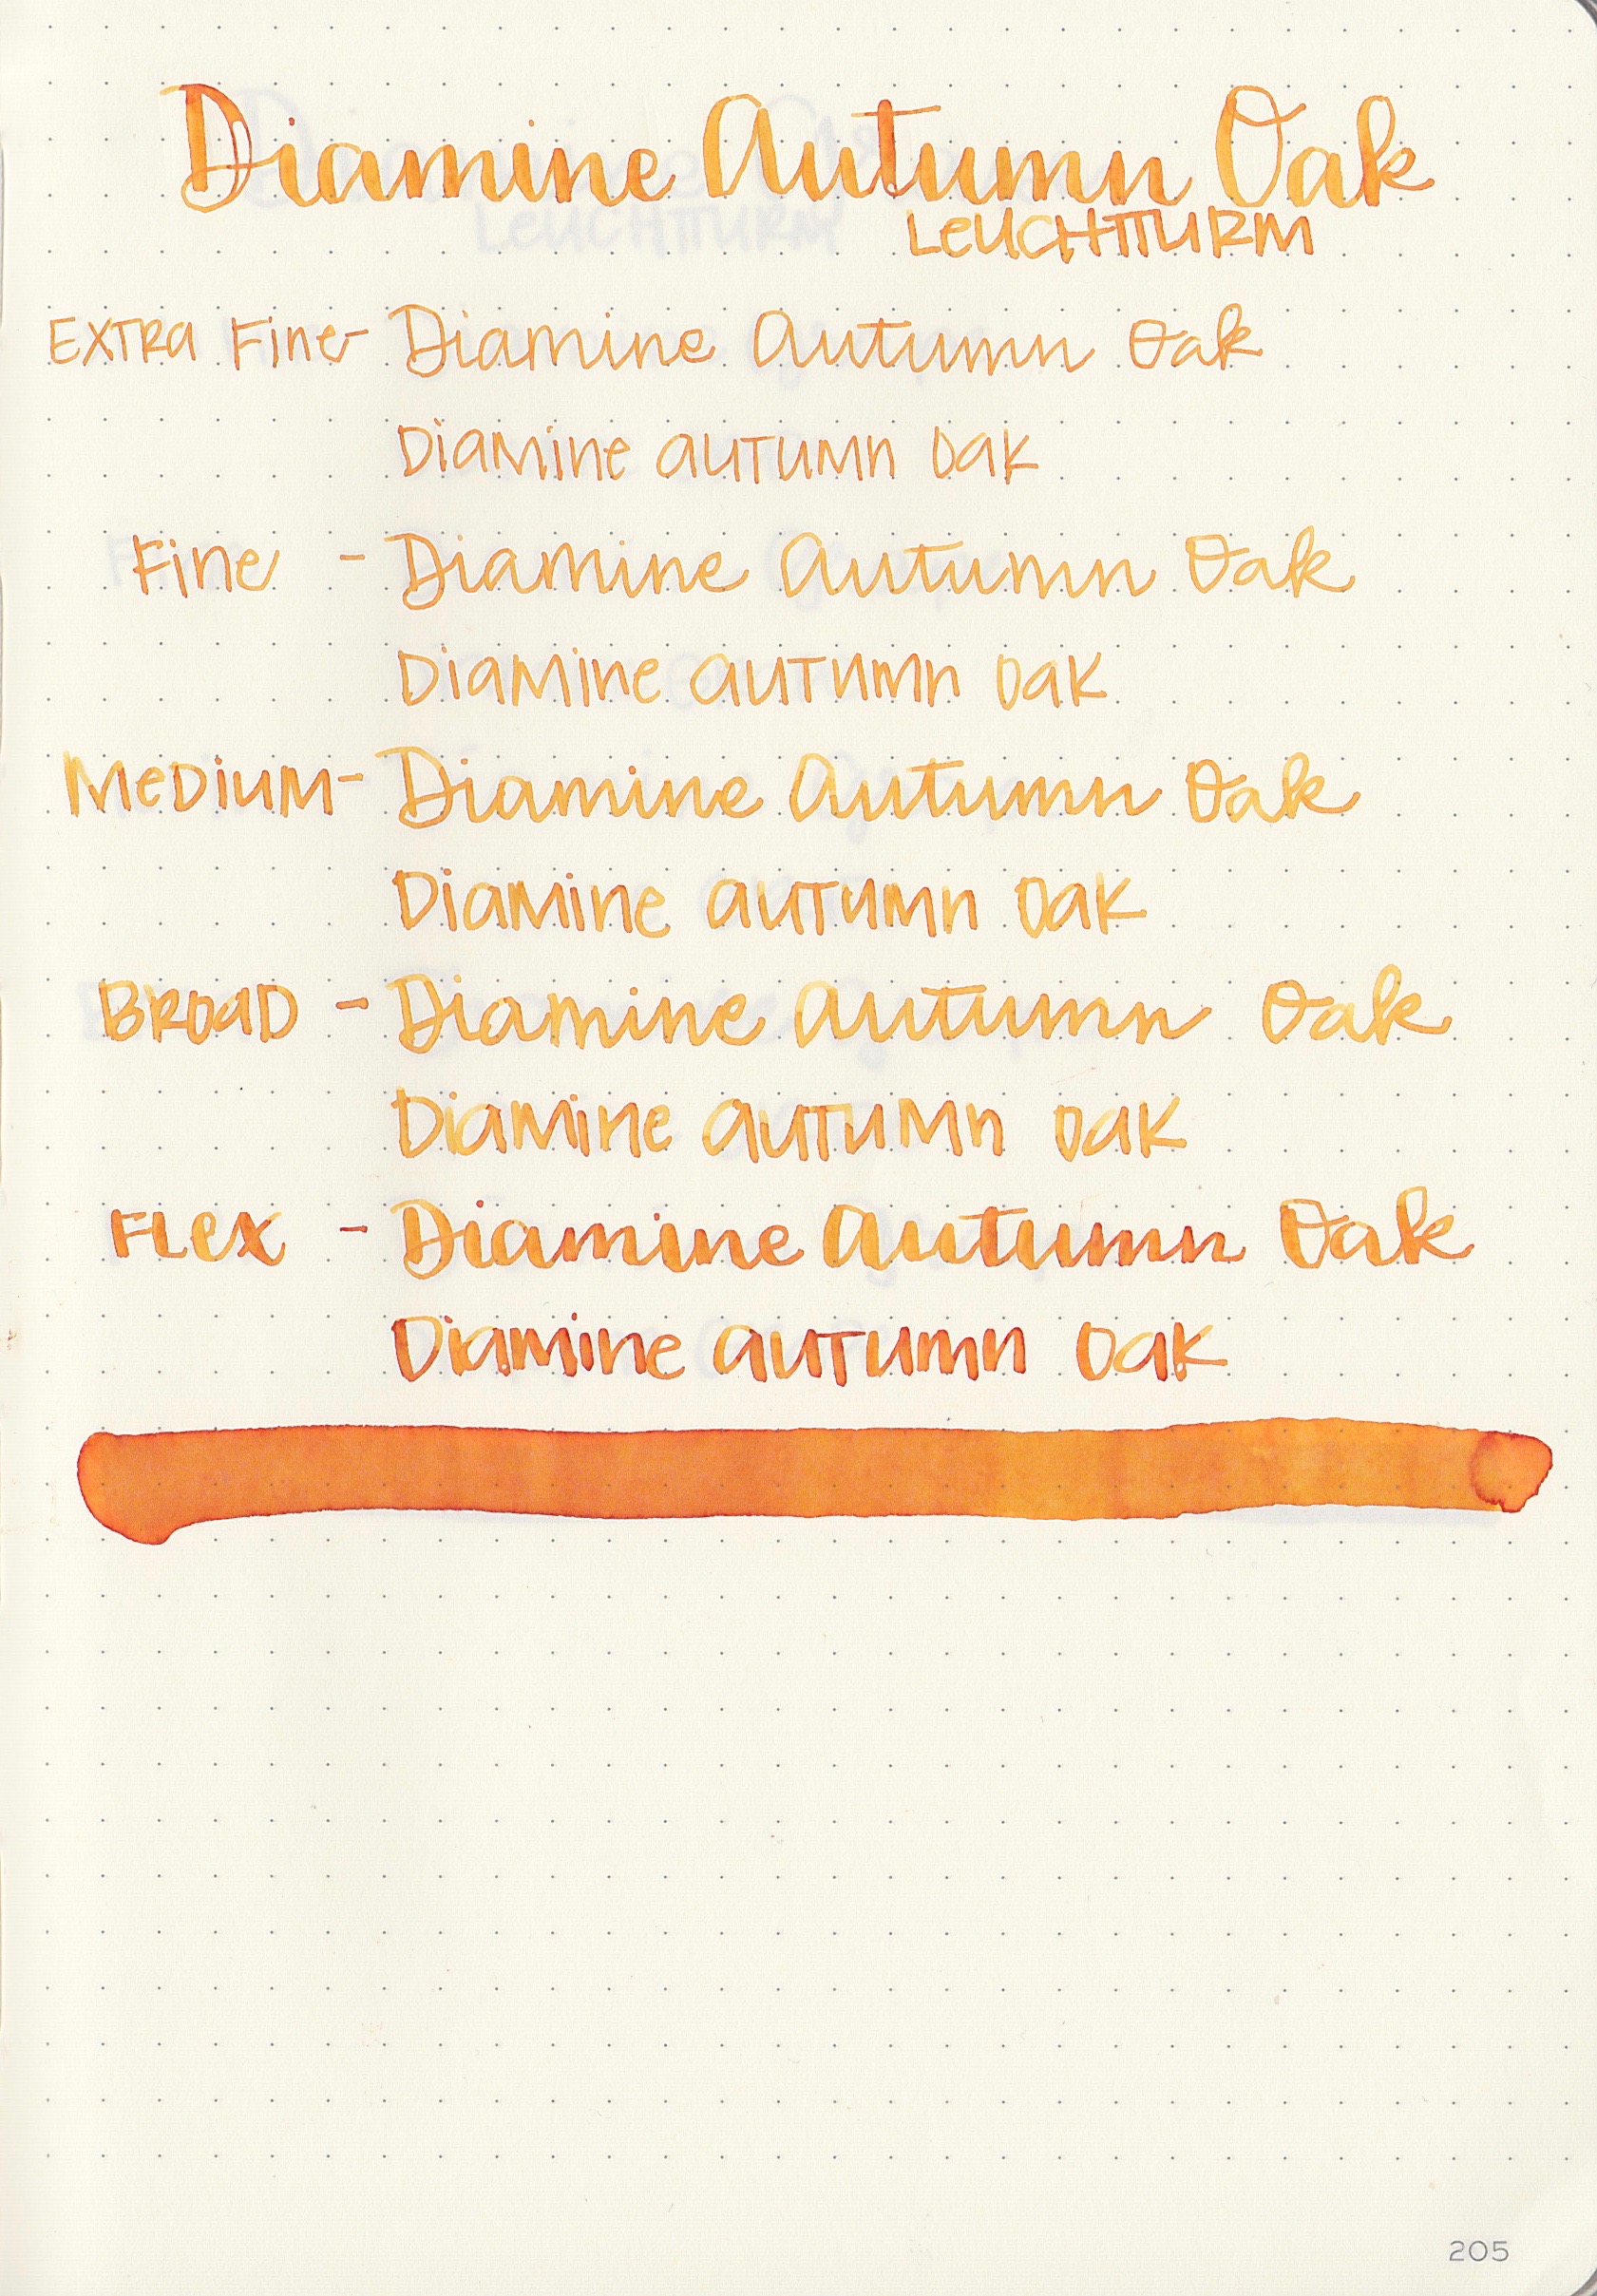 Diamine Autumn Oak
LEUCHTTURM
EXTRA Fine - Diamine Autumn Oak
Diamine AUTUMN Oak
Fine - Diamine Autumn Oak
Diamine AUTUMN Oak
MeDiUM - Diamine Autumn Oak
Diamine AUTUMN Oak
BROAD - Diamine Autumn Oak
Diamine AUTUMN Oak
FLex - Diamine Autumn Oak
Diamine AUTUMN Oak
205